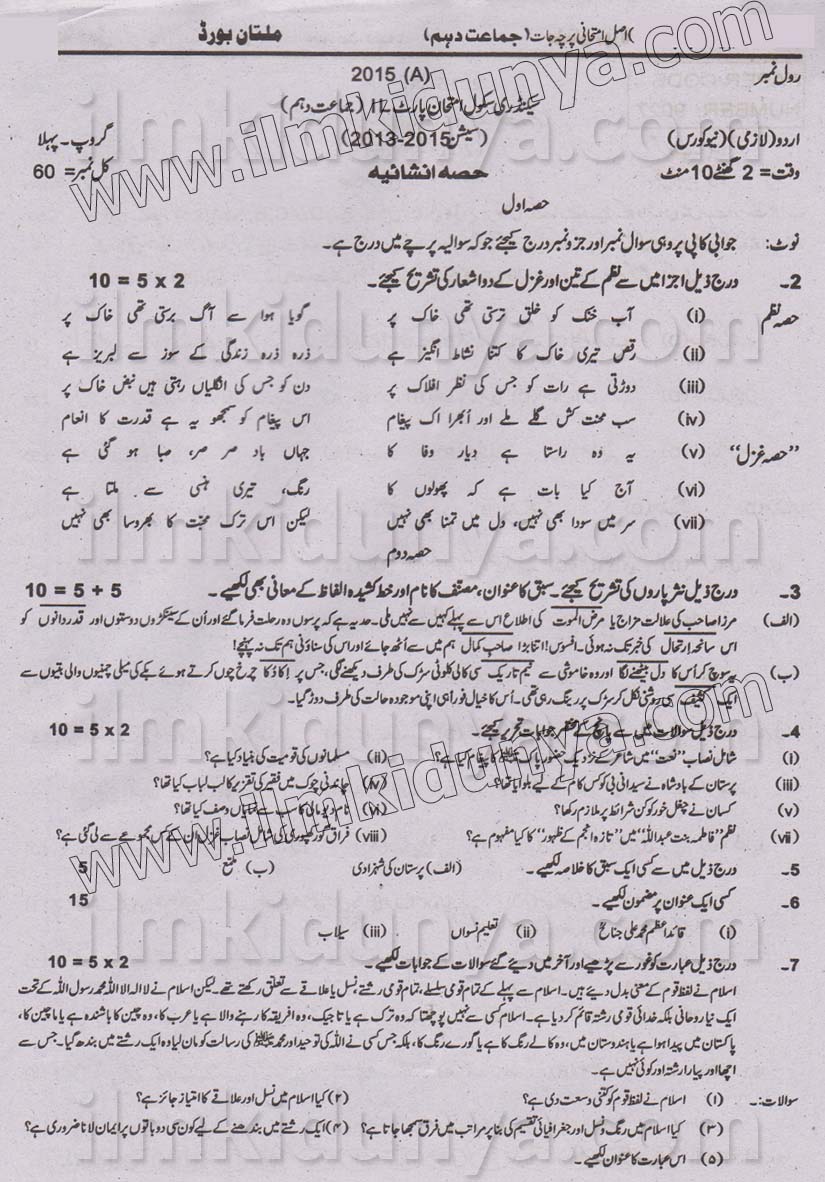 (اصل امتحانی پرچہ جات (جماعت دہم) ملتان بورڈ
رول نمبر 2015 (A)
سیکنڈری سکول امتحان پارٹ II (جماعت دہم)
اردو (لازمی) (نیو کورس) (سیشن 2013-2015) گروپ۔ پہلا
وقت = 2 گھنٹے 10 منٹ حصہ انشائیہ کل نمبر = 60
حصہ اول
نوٹ: جوابی کاپی پر وہی سوال نمبر اور جزو نمبر درج کیجئے جو کہ سوالیہ پرچے میں درج ہے۔
2۔ درج ذیل اجزا میں سے نظم کے تین اور غزل کے دو اشعار کی تشریح کیجئے۔ 10 = 5 x 2
حصہ نظم (i) آب خنک کو خلق ترستی تھی خاک پر گویا ہوا سے آگ برستی تھی خاک پر
(ii) رقص تیری خاک کا کتنا نشاط انگیز ہے ذرہ ذرہ زندگی کے سوز سے لبریز ہے
(iii) دوڑتی ہے رات کو جس کی نظر افلاک پر دن کو جس کی انگلیاں رہتی ہیں نبض خاک پر
(iv) سب محنت کش گلے ملے اور اُبھرا اک پیغام اس پیغام کو سمجھو یہ ہے قدرت کا انعام
"حصہ غزل" (v) یہ وہ راستا ہے دیار وفا کا جہاں باد صر صر، صبا ہو گئی ہے
(vi) آج کیا بات ہے کہ پھولوں کا رنگ، تیری ہنسی سے ملتا ہے
(vii) سر میں سودا بھی نہیں، دل میں تمنا بھی نہیں لیکن اس ترک محبت کا بھروسا بھی نہیں
حصہ دوم
3۔ درج ذیل نثر پاروں کی تشریح کیجئے۔ سبق کا عنوان، مصنف کا نام اور خط کشیدہ الفاظ کے معانی بھی لکھیے۔ 10 = 5 + 5
(الف) مرزا صاحب کی علالت مزاج یا مرض الموت کی اطلاع اس سے پہلے کہیں سے نہیں ملی۔ حد یہ ہے کہ پرسوں وہ رحلت فرما گئے اور اُن کے سینکڑوں دوستوں اور قدر دانوں کو
اس سانحہ ارتحال کی خبر تک نہ ہوئی۔ افسوس! اتنا بڑا صاحب کمال ہم میں سے اُٹھ جائے اور اس کی سناؤنی ہم تک نہ پہنچے!
(ب) یہ سوچ کر اُس کا دل بیٹھنے لگا اور وہ خاموشی سے نیم تاریک سی کالی کلوٹی سڑک کی طرف دیکھنے لگی، جس پر اِکا دُکا چرخ چوں کرتے ہوئے یکے کی میلی چمنیوں والی بتیوں سے
ایک کثیف سی روشنی نکل کر سڑک پر رینگ رہی تھی۔ اُس کا خیال فوراً ہی اپنی موجودہ حالت کی طرف دوڑ گیا۔
4۔ درج ذیل سوالات میں سے پانچ کے مختصر جوابات تحریر کیجئے۔ 10 = 5 x 2
(i) شامل نصاب "نعت" میں شاعر کے نزدیک حضور پاکﷺ کا پیغام کیا ہے؟ (ii) مسلمانوں کی قومیت کی بنیاد کیا ہے؟
(iii) پرستان کے بادشاہ نے سیدانی بی کو کس کام کے لیے بلوایا تھا؟ (iv) چاندنی چوک میں فقیر کی تقریر کا لب لباب کیا تھا؟
(v) کسان نے چغل خور کو کن شرائط پر ملازم رکھا؟ (vi) نام دیو مالی کا سب سے نمایاں وصف کیا تھا؟
(vii) نظم "فاطمہ بنت عبداللہ" میں "تازہ انجم کے ظہور" کا کیا مفہوم ہے؟ (viii) فراق گورکھپوری کی شامل نصاب غزل ان کے کس مجموعے سے لی گئی ہے؟
5۔ درج ذیل میں سے کسی ایک سبق کا خلاصہ لکھیے۔ (الف) پرستان کی شہزادی (ب) ملمع 5
6۔ کسی ایک عنوان پر مضمون لکھیے۔ 15
(i) قائد اعظم محمد علی جناحؒ (ii) تعلیم نسواں (iii) سیلاب
7۔ درج ذیل عبارت کو غور سے پڑھیے اور آخر میں دیئے گئے سوالات کے جوابات لکھیے۔ 10 = 5 x 2
اسلام نے لفظ قوم کے معنی بدل دیے ہیں۔ اسلام سے پہلے کے تمام قومی سلسلے، تمام قومی رشتے، نسل یا علاقے سے تعلق رکھتے تھے۔ لیکن اسلام نے لا الہ الا اللہ محمد رسول اللہ کے تحت
ایک نیا روحانی بلکہ خدائی قومی رشتہ قائم کر دیا ہے۔ اسلام کسی سے نہیں پوچھتا کہ وہ ترک ہے یا تاجیک، وہ افریقہ کا رہنے والا ہے یا عرب کا، وہ چین کا باشندہ ہے یا ماچین کا،
پاکستان میں پیدا ہوا ہے یا ہندوستان میں، وہ کالے رنگ کا ہے یا گورے رنگ کا، بلکہ جس کسی نے اللہ کی توحید اور محمدﷺ کی رسالت کو مان لیا وہ ایک رشتے میں بندھ گیا۔ جس سے
اچھا اور پیارا رشتہ اور کوئی نہیں ہے۔
سوالات:۔ (۱) اسلام نے لفظ قوم کو کتنی وسعت دی ہے؟ (۲) کیا اسلام میں نسل اور علاقے کا امتیاز جائز ہے؟
(۳) کیا اسلام میں رنگ و نسل اور جغرافیائی تقسیم کی بنا پر مراتب میں فرق سمجھا جاتا ہے؟ (۴) ایک رشتے میں بندھنے کے لیے کون سی دو باتوں پر ایمان لانا ضروری ہے؟
(۵) اس عبارت کا عنوان لکھیے۔
www.ilmkidunya.com
ilmkidunya.com